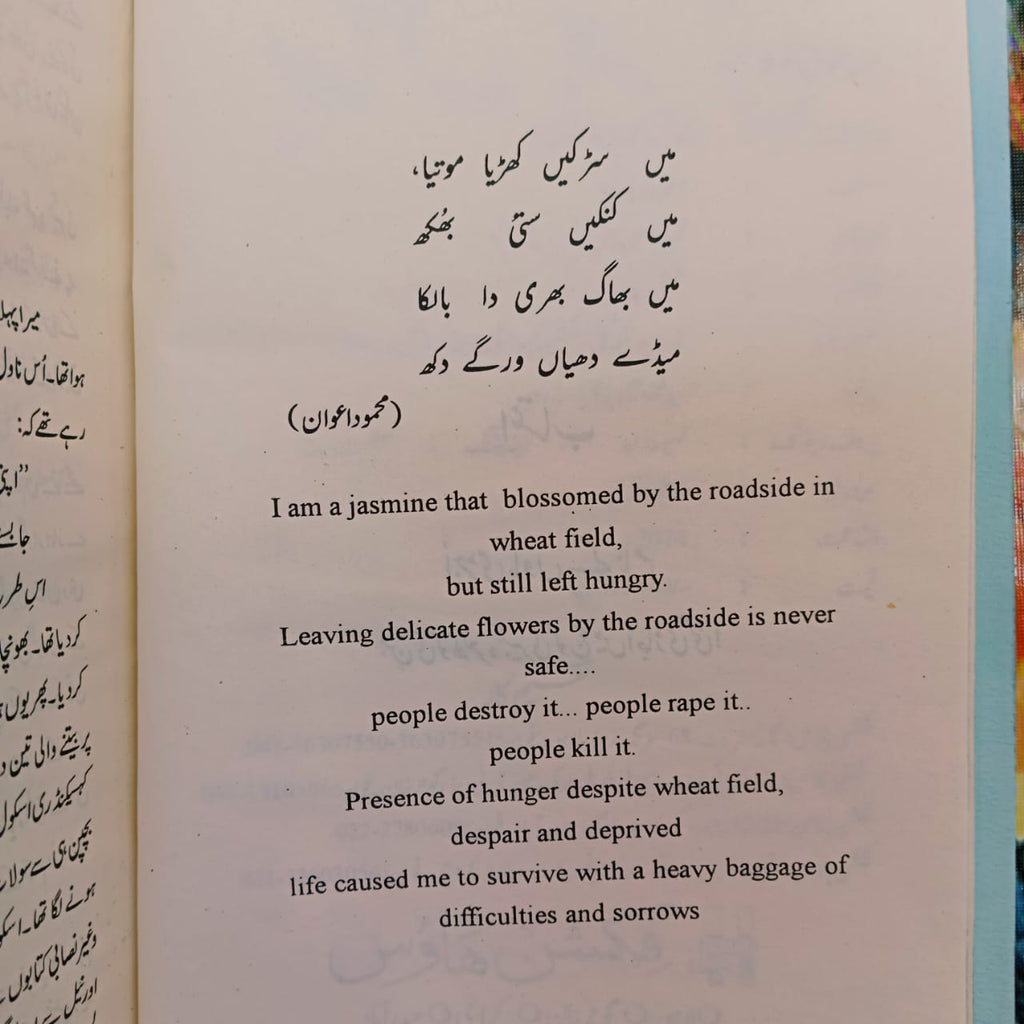 میں سڑکیں کھڑیا موتیا،
میں کنکیں ستی بھُکھ
میں بھاگ بھری دا بالکا
میڈے دھیاں ورگے دکھ
(محمود اعوان)
I am a jasmine that blossomed by the roadside in
wheat field,
but still left hungry.
Leaving delicate flowers by the roadside is never
safe....
people destroy it... people rape it..
people kill it.
Presence of hunger despite wheat field,
despair and deprived
life caused me to survive with a heavy baggage of
difficulties and sorrows
میرا پہلا
ہوا تھا۔ اُس ناول
رہے تھے کہ:
"اپنی
جا بسے
اس طرر
کر دیا تھا۔ بھونچا
کر دیا۔ پھر یوں
پر بیتنے والی تین
ہیکنڈری اسکول
بچپن ہی سے سولا
ہونے لگا تھا۔ اسکو
وغیر نصابی کتابوں
اور